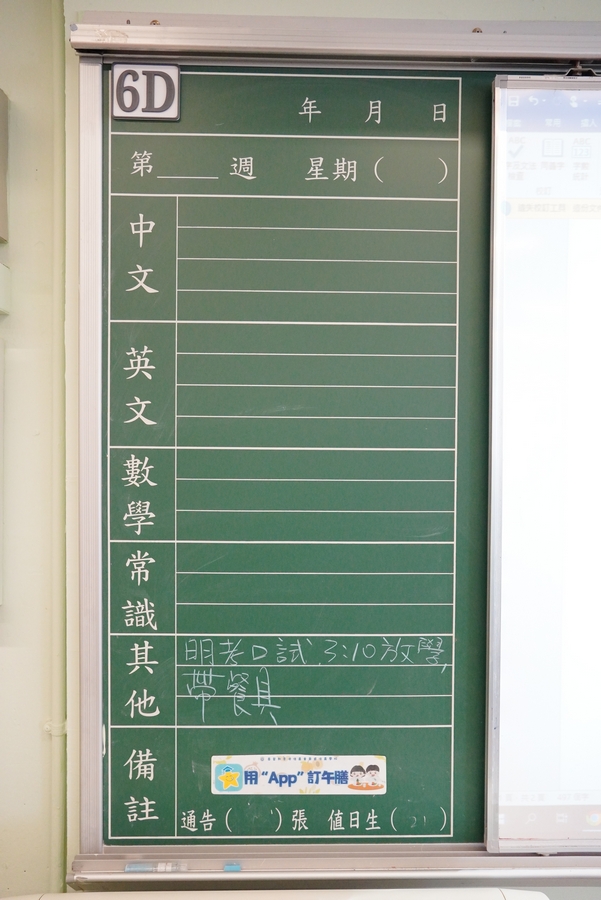 6D
年 月 日
第____週 星期( )
中文
英文
數學
常識
其他
明考口試,3:10放學,
帶餐具
備註
用“App”訂午膳
通告( )張 值日生( )